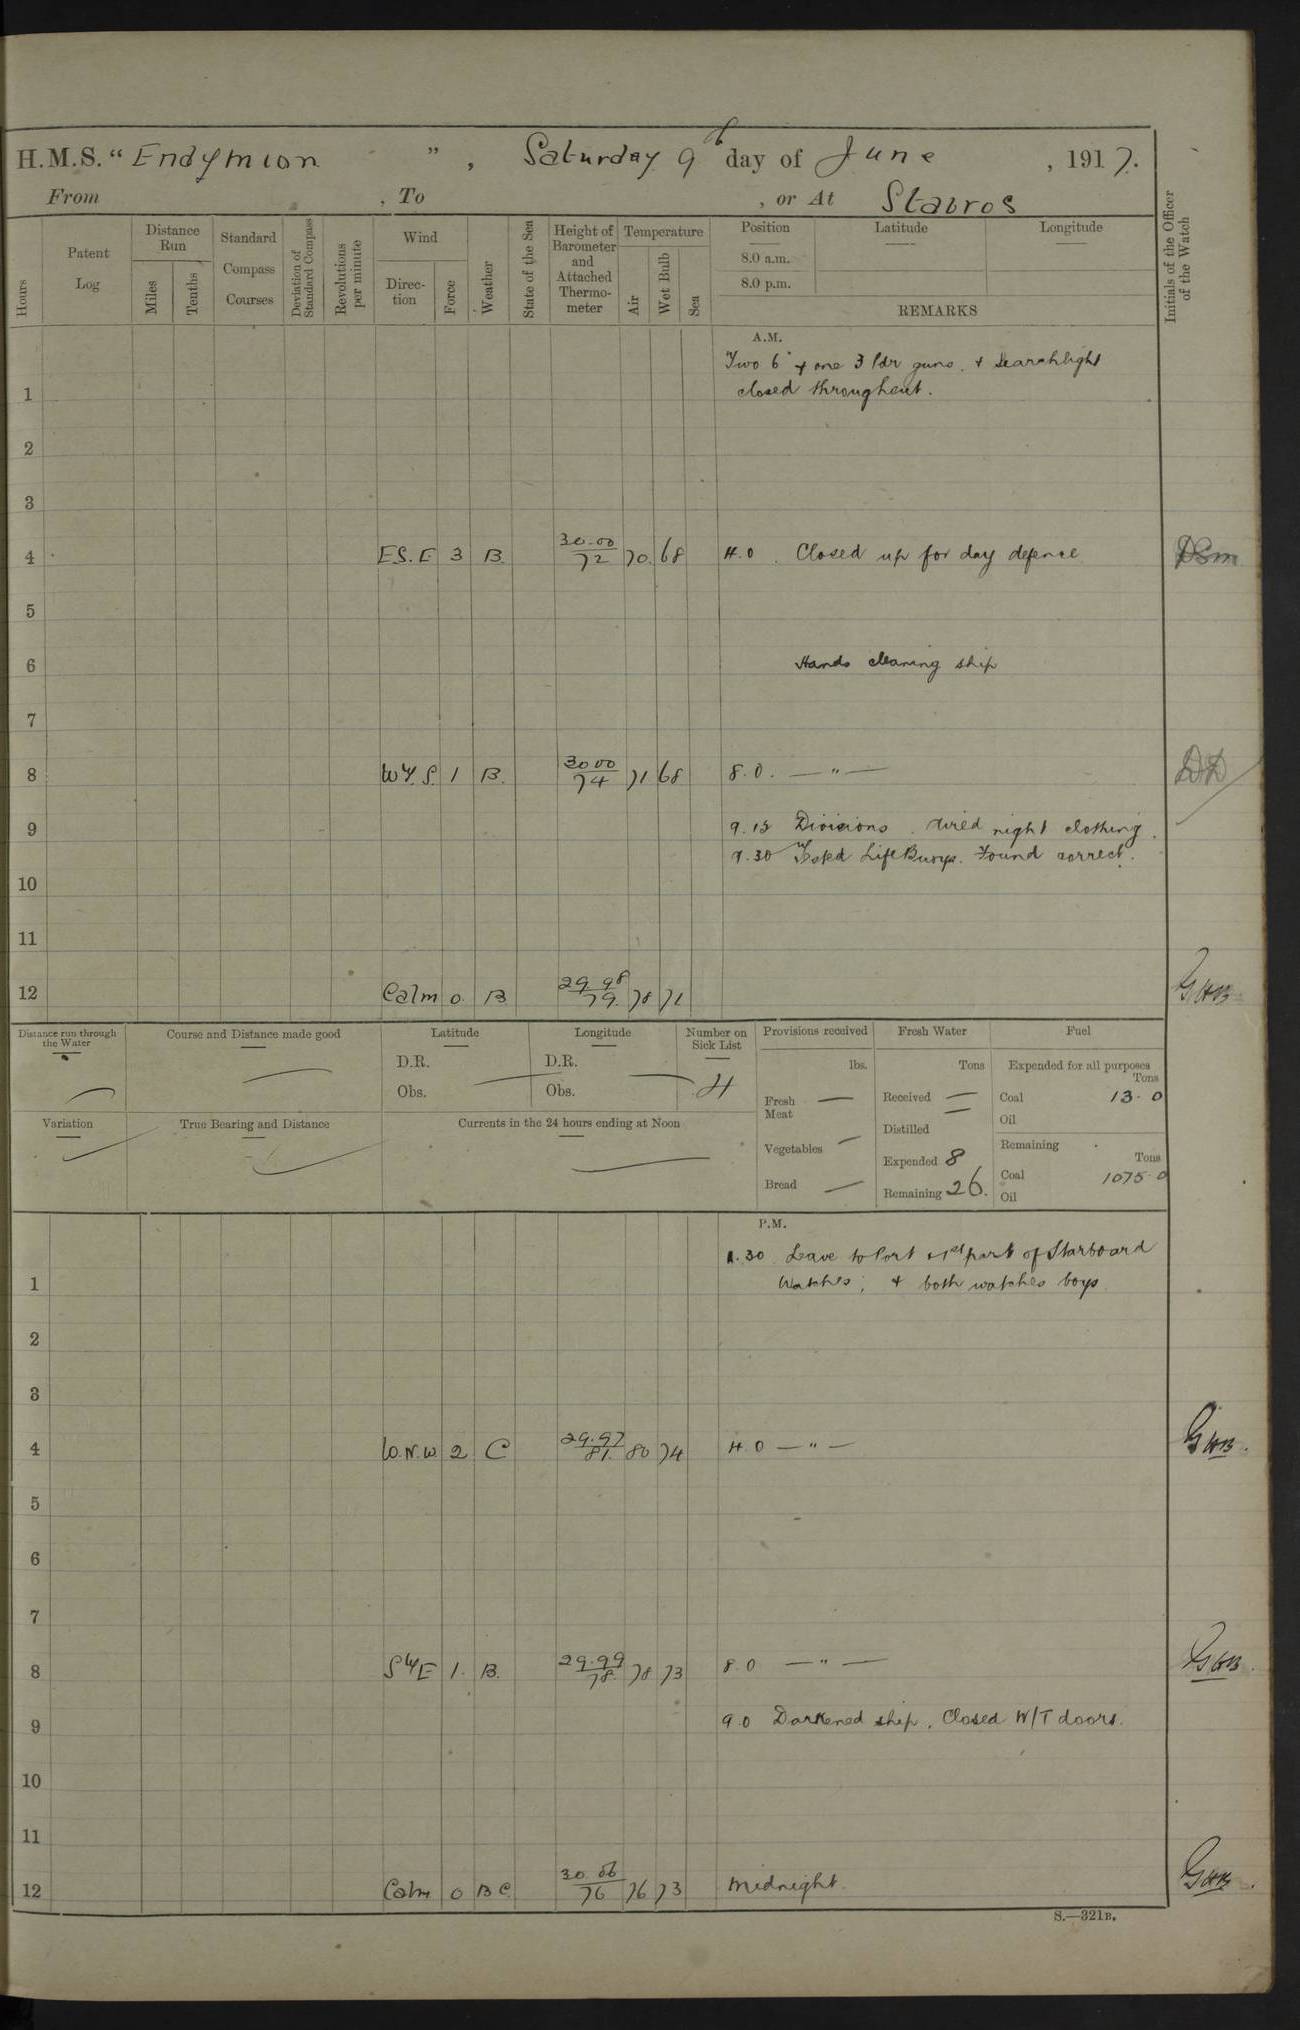 H.M.S. “ Endymion ” , Saturday 9th day of June , 1917.
From , To , or At Stavros
Hours
Patent Log
Distance Run
Miles
Tenths
Standard Compass Courses
Deviation of Standard Compass
Revolutions per minute
Wind
Direction
Force
Weather
State of the Sea
Height of Barometer and Attached Thermometer
Temperature
Air
Wet Bulb
Sea
Position
Latitude
Longitude
8.0 a.m.
8.0 p.m.
REMARKS
Initials of the Officer of the Watch
A.M.
Two 6" + one 3 Pdr guns. + Searchlight
1 closed throughout.
2
3
4 E.S.E 3 B. 30.00 72 70. 68 4.0 Closed up for day defence DSm
5
6 Hands cleaning ship
7
8 WyS. 1 B. 30 00 74 71 68 8.0. — " —
9 9.15 Divisions. Aired night clothing.
9.30 Tested LifeBuoys. Found correct.
10
11
12 Calm 0. B 29.98 79. 78 71 GHB
Distance run through the Water
Course and Distance made good
Latitude
D.R.
Obs.
Longitude
D.R.
Obs.
Number on Sick List
4
Variation
True Bearing and Distance
Currents in the 24 hours ending at Noon
Provisions received
lbs.
Fresh Meat —
Vegetables —
Bread —
Fresh Water
Tons
Received —
Distilled —
Expended 8
Remaining 26.
Fuel
Expended for all purposes
Tons
Coal 13.0
Oil
Remaining
Tons
Coal 1075.0
Oil
P.M.
1.30 Leave to Port + 1st part of Starboard
1 Watches; + both watches boys
2
3
4 W.N.W. 2 C 29.97 81. 80 74 4.0 — " — GHB.
5
6
7
8 SyE 1. B. 29.99 78. 78 73 8.0 — " — GHB.
9 9.0 Darkened ship. Closed W/T doors.
10
11
12 Calm 0 B C. 30 06 76 76 73 Midnight. GHB.
S.—321B.